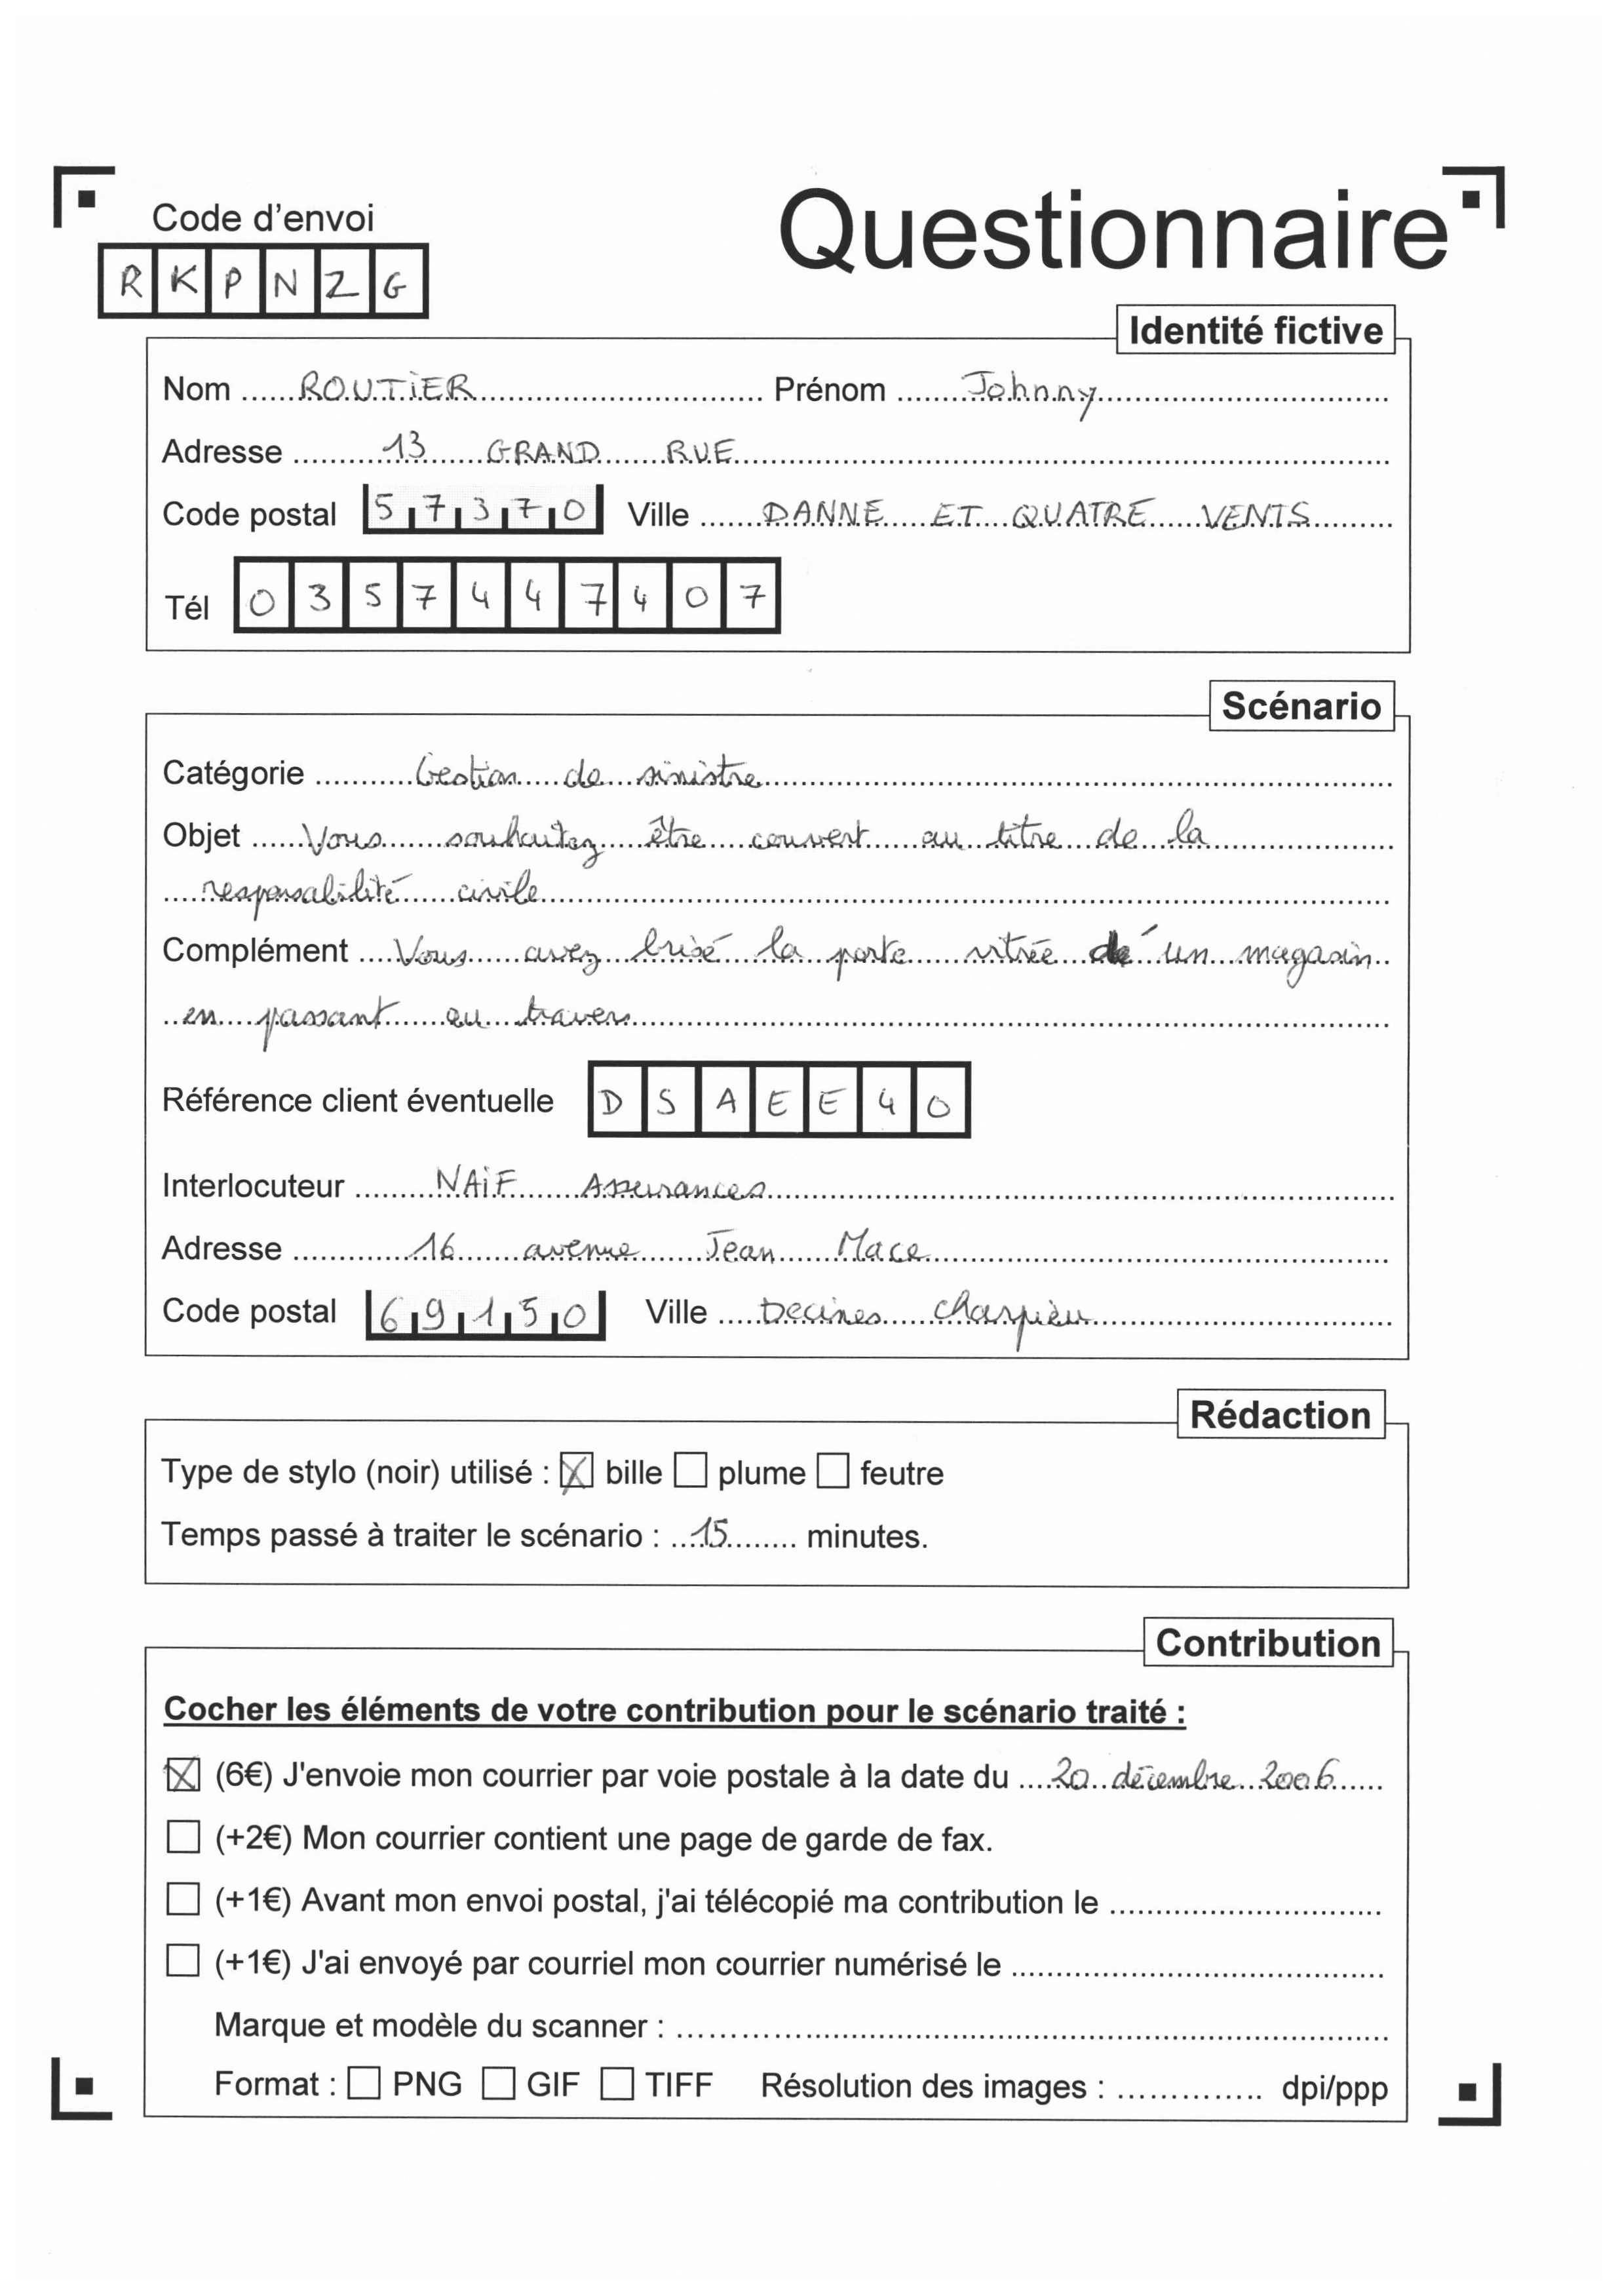 Code d'envoi
Questionnaire
R K P N Z G
Identité fictive
Nom ROUTiER Prénom Johnny
Adresse 13 GRAND RUE
Code postal 57370 Ville DANNE ET QUATRE VENTS
Tél 0357447407
Scénario
Catégorie Gestion de sinistre
Objet Vous souhaitez être couvert au titre de la
responsabilité civile
Complément Vous avez brisé la porte vitrée d'un magasin
en passant au travers
Référence client éventuelle DSAEE40
Interlocuteur NAiF Assurances
Adresse 16 avenue Jean Mace
Code postal 69150 Ville Decines charpieu
Rédaction
Type de stylo (noir) utilisé : ☒ bille ☐ plume ☐ feutre
Temps passé à traiter le scénario : 15 minutes.
Contribution
Cocher les éléments de votre contribution pour le scénario traité :
☒ (6€) J'envoie mon courrier par voie postale à la date du 20 décembre 2006
☐ (+2€) Mon courrier contient une page de garde de fax.
☐ (+1€) Avant mon envoi postal, j'ai télécopié ma contribution le
☐ (+1€) J'ai envoyé par courriel mon courrier numérisé le
Marque et modèle du scanner :
Format : ☐ PNG ☐ GIF ☐ TIFF Résolution des images : dpi/ppp